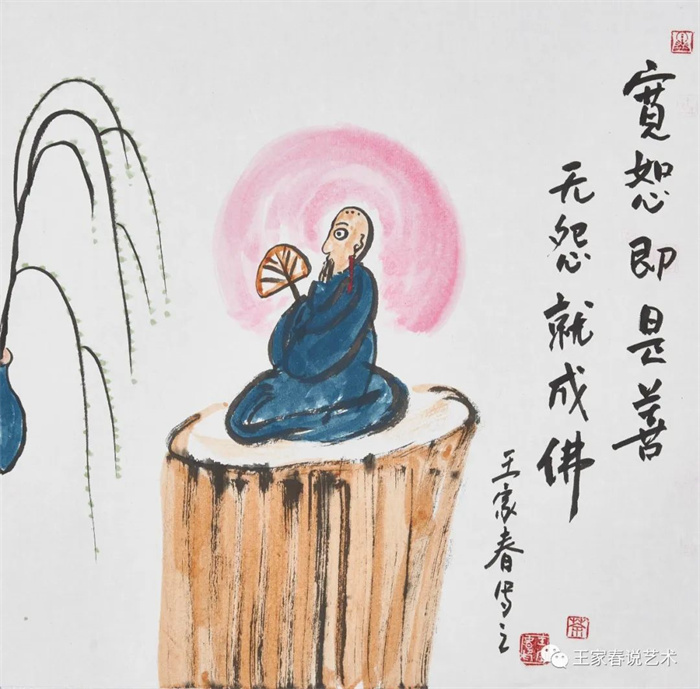 寛恕即是善
无怨就成佛
王家春写之
王家春说艺术